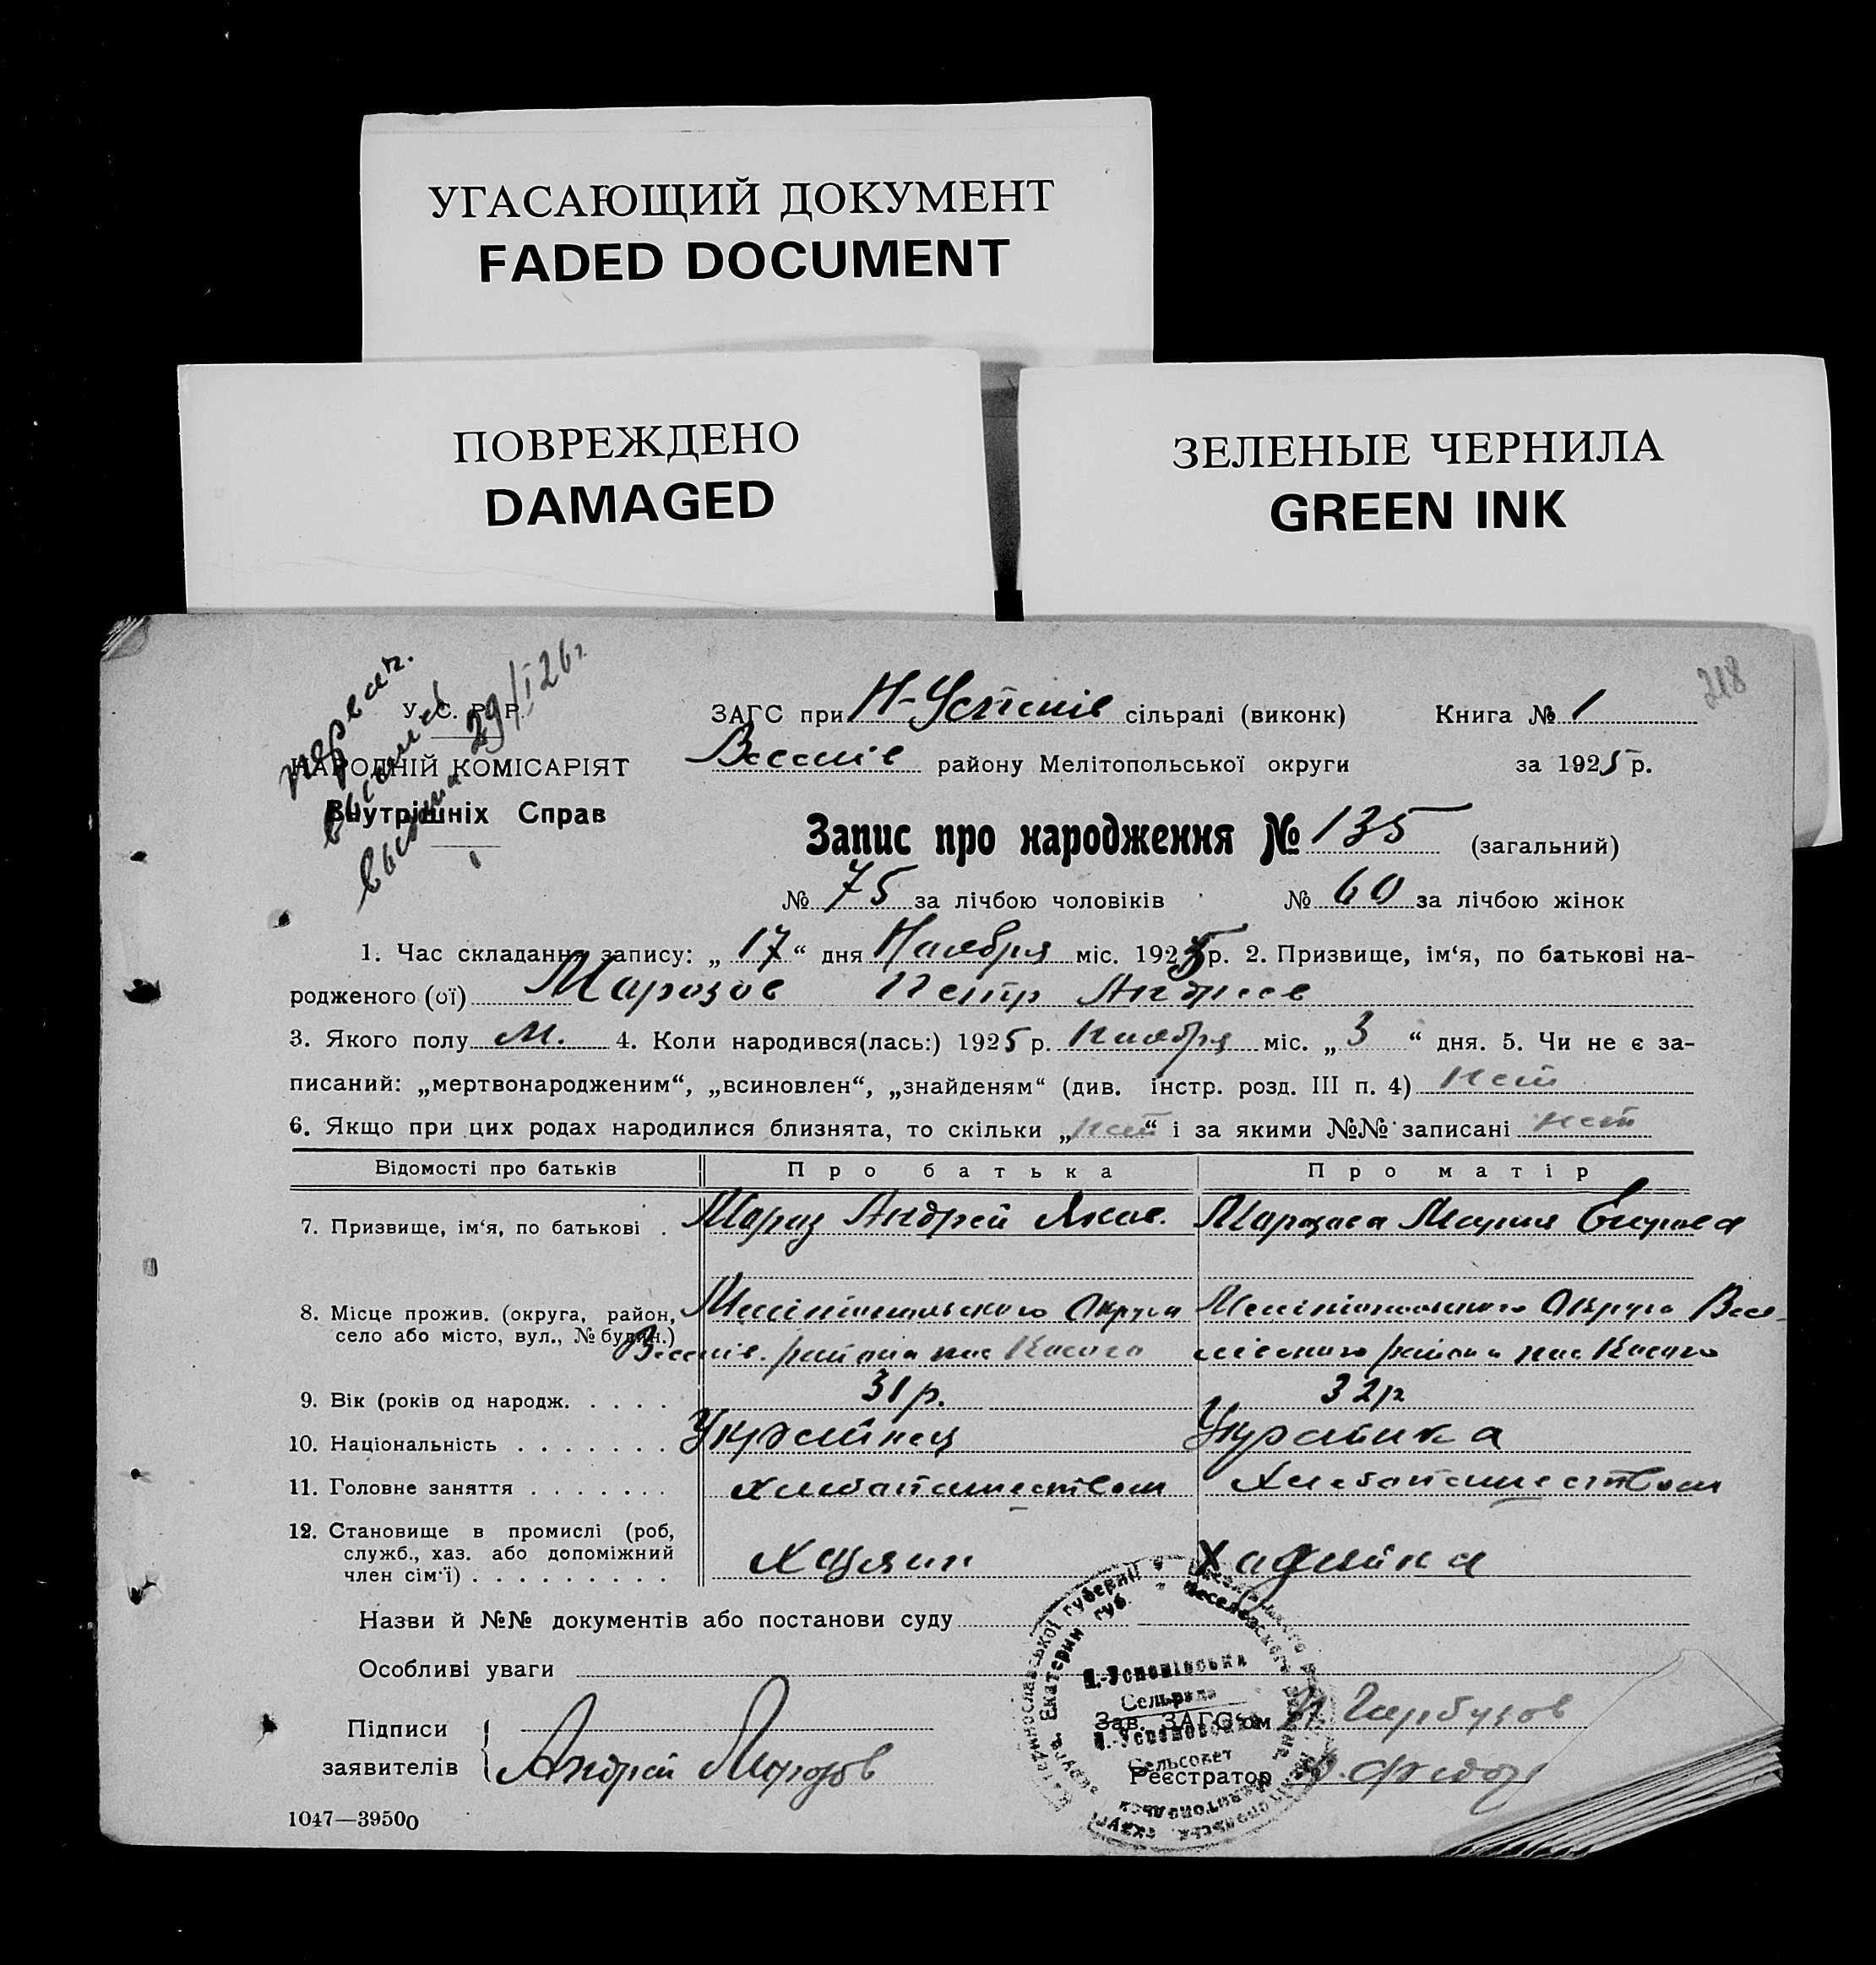 УГАСАЮЩИЙ ДОКУМЕНТ
FADED DOCUMENT
ПОВРЕЖДЕНО
DAMAGED
ЗЕЛЕНЫЕ ЧЕРНИЛА
GREEN INK
218
29/I 26 г.
У. С. Р. Р.
НАРОДНІЙ КОМІСАРІЯТ
Внутрішніх Справ
ЗАГС при Н-Успенів сільраді (виконк) Книга № 1
Веселів району Мелітопольської округи за 1925 р.
Запис про народження № 135 (загальний)
№ 75 за лічбою чоловіків № 60 за лічбою жінок
1. Час складання запису: „ 17 “ дня Ноября міс. 1925 р. 2. Призвище, ім‘я, по батькові на-
родженого (ої) Марозов Петр Андреев
3. Якого полу м. 4. Коли народився(лась:) 1925 р. Ноября міс. „ 3 “ дня. 5. Чи не є за-
писаний: „мертвонародженим“, „всиновлен“, „знайденям“ (див. інстр. розд. III п. 4) нет
6. Якщо при цих родах народилися близнята, то скільки „ нет “ і за якими №№ записані нет
Відомості про батьків Про батька Про матір
7. Призвище, ім‘я, по батькові . Мароз Андрей Яков. Марозова Мария
8. Місце прожив. (округа, район, село або місто, вул., № будин.)
Мелітопольского Округа Мелітопольского Округа Весе-
Веселів. района района
9. Вік (років од народж. . . . . 31 р. 32 р
10. Національність . . . . . . . Украінец Украінка
11. Головне заняття . . . . . . . хлебопашеством хлебопашеством
12. Становище в промислі (роб,
служб., хаз. або допоміжний
член сім‘ї) . . . . . . . . .
Назви й №№ документів або постанови суду
Особливі уваги
Підписи
заявителів
Андрей Морозов
Н.-Успенівська
Сельрада
Н.-Успеновский
Сельсовет
Зав. ЗАГС‘ом
Реєстратор
1047—39500